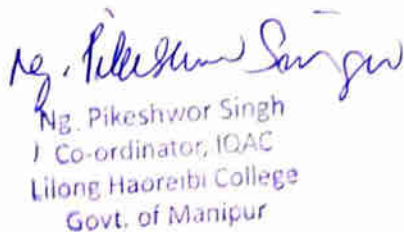 Ng. Pikeshwor Singh
Ng. Pikeshwor Singh
/ Co-ordinator, IQAC
Lilong Haoreibi College
Govt. of Manipur